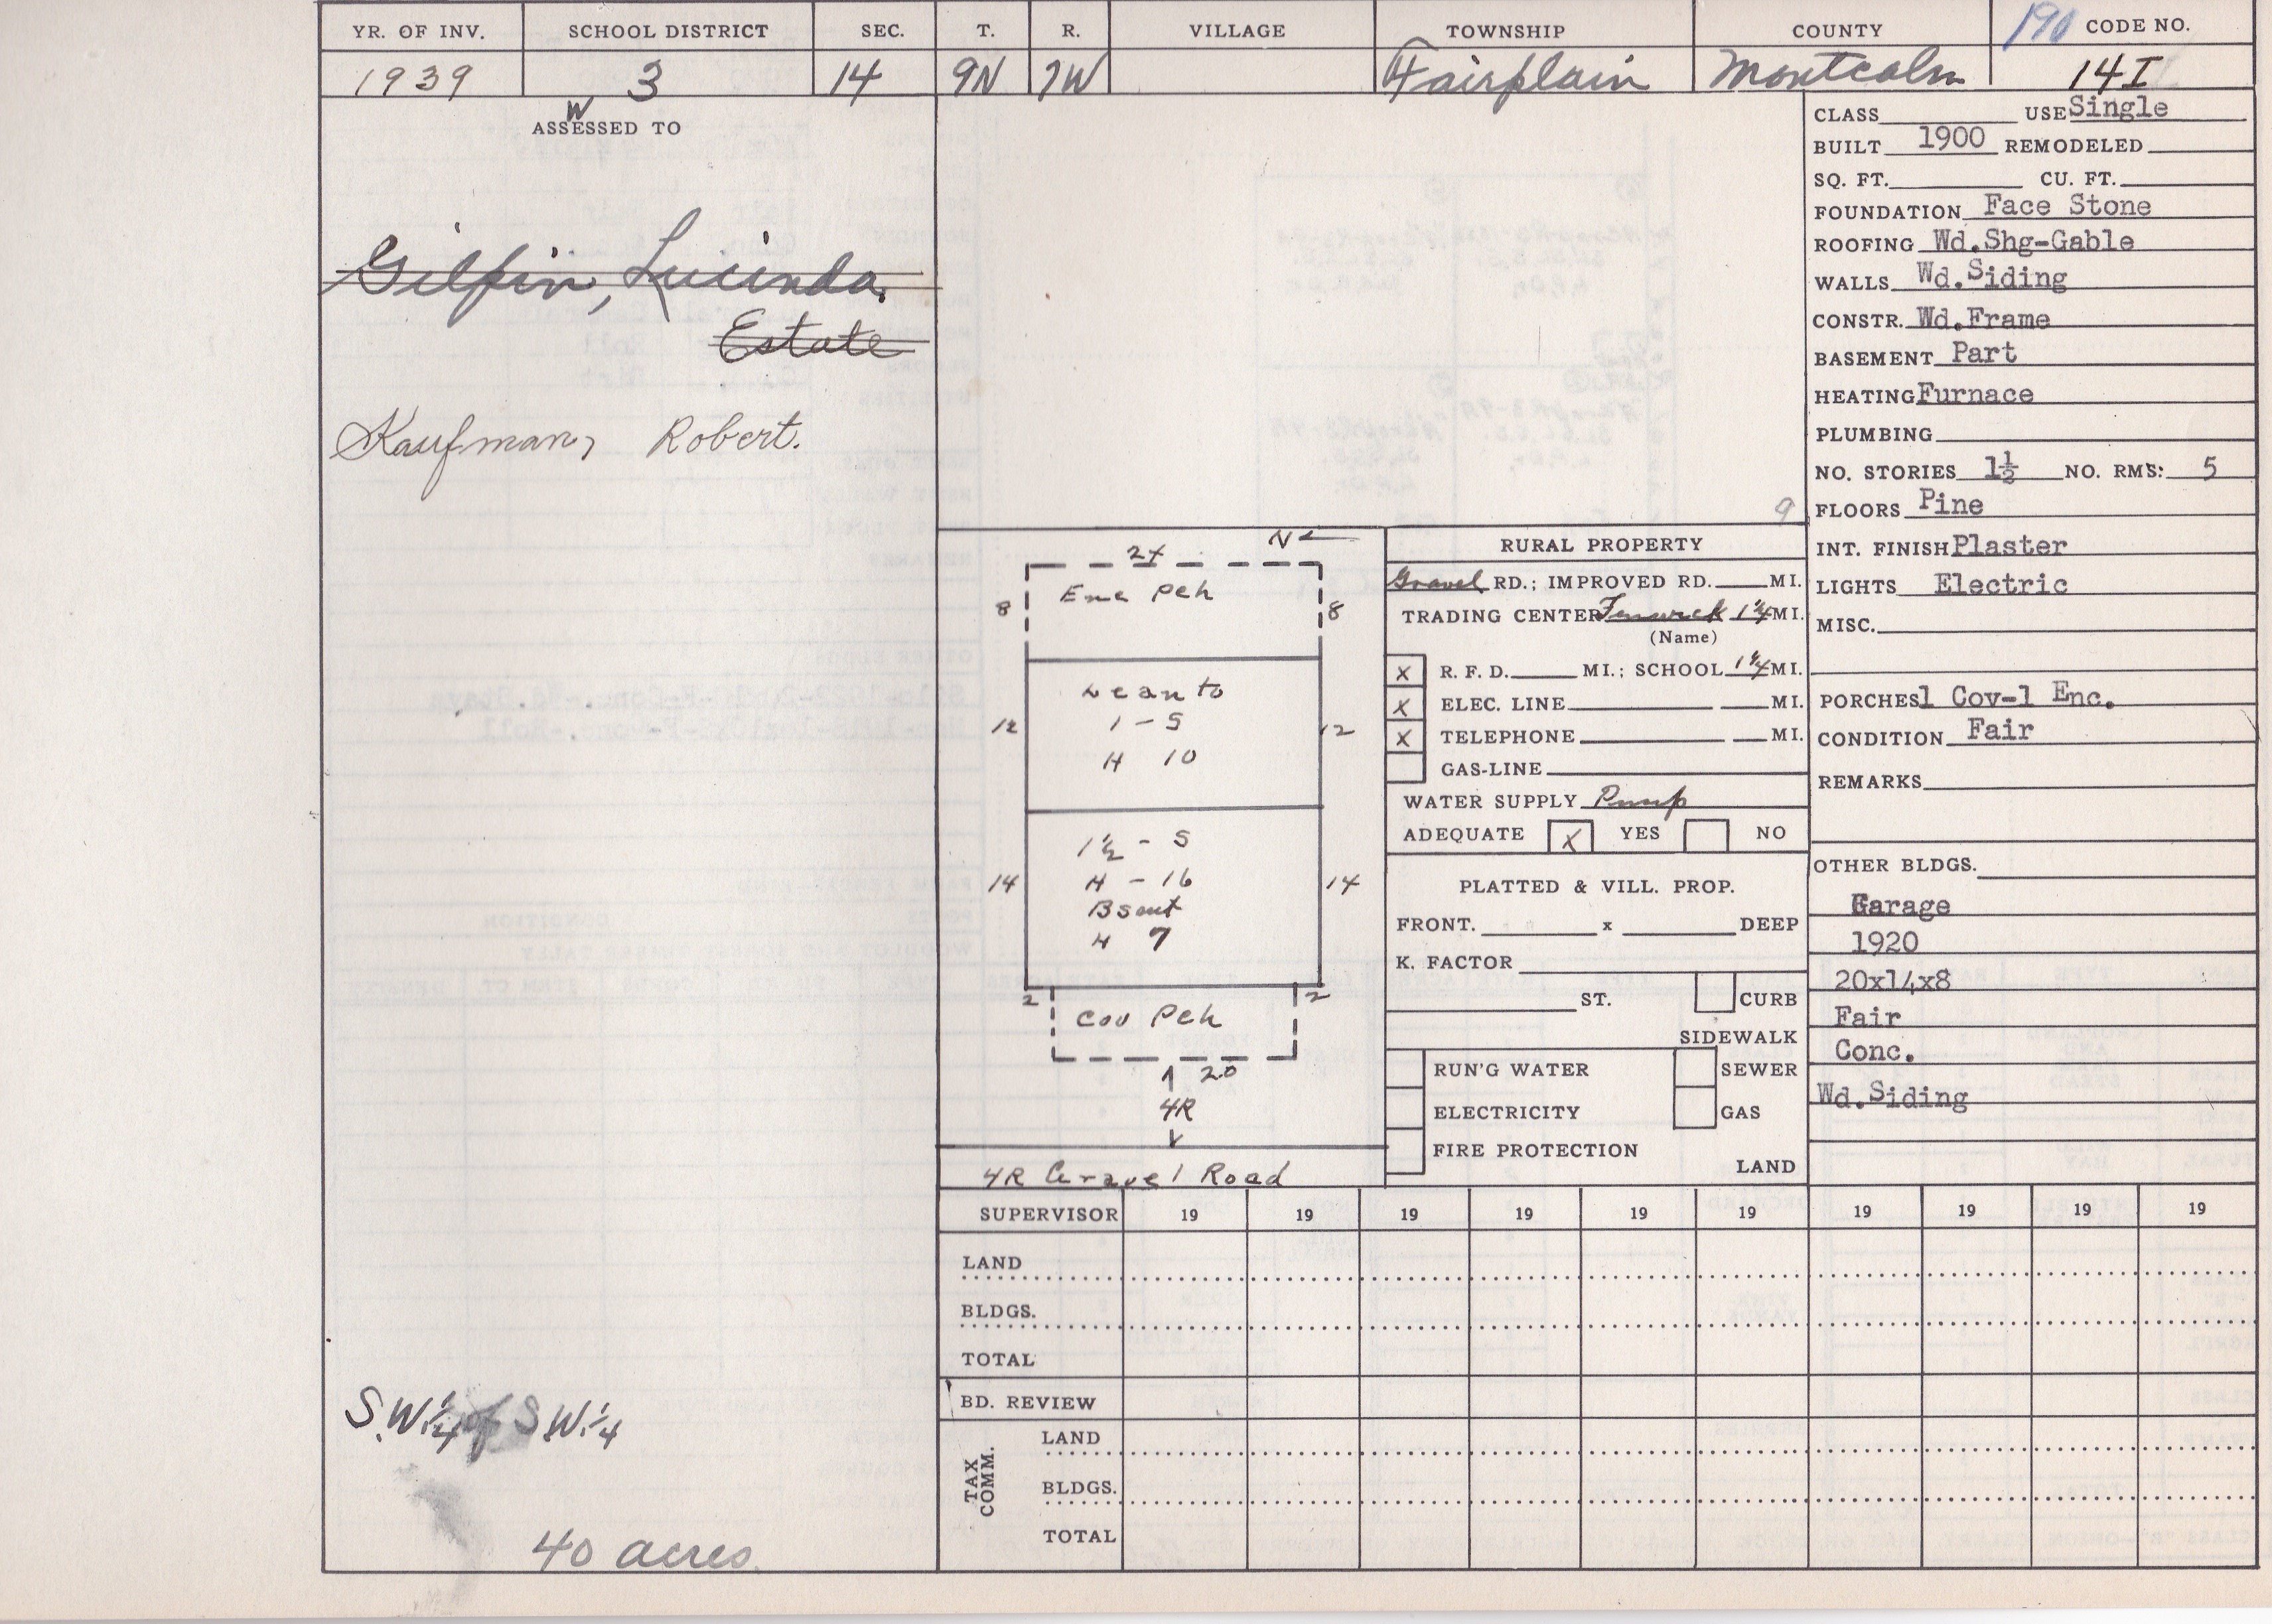 YR. OF INV. SCHOOL DISTRICT SEC. T. R. VILLAGE TOWNSHIP COUNTY 190 CODE NO.
1939 3 14 9N 7W Fairplain Montcalm 14I
W
ASSESSED TO
Gilpin, Lucinda.
Estate
Kaufman, Robert.
S.W.1/4 of S W.1/4
40 acres.
N
24
8 Enc Pch 8
Lean to
1 - S
12 12
H 10
1½ - S
14 H - 16 14
Bsmt
H 7
2 2
Cov Pch
20
4R
4R Gravel Road
9
RURAL PROPERTY
Gravel RD.; IMPROVED RD. MI.
TRADING CENTER Fenwick 1¼ MI.
(Name)
X R. F. D. MI.; SCHOOL 1¼ MI.
X ELEC. LINE MI.
X TELEPHONE MI.
GAS-LINE
WATER SUPPLY Pump
ADEQUATE X YES NO
PLATTED & VILL. PROP.
FRONT. x DEEP
K. FACTOR
ST. CURB
SIDEWALK
RUN'G WATER SEWER
ELECTRICITY GAS
FIRE PROTECTION
LAND
CLASS USE Single
BUILT 1900 REMODELED
SQ. FT. CU. FT.
FOUNDATION Face Stone
ROOFING Wd.Shg-Gable
WALLS Wd.Siding
CONSTR. Wd.Frame
BASEMENT Part
HEATING Furnace
PLUMBING
NO. STORIES 1½ NO. RMS: 5
FLOORS Pine
INT. FINISH Plaster
LIGHTS Electric
MISC.
PORCHES 1 Cov-1 Enc.
CONDITION Fair
REMARKS
OTHER BLDGS.
Garage
1920
20x14x8
Fair
Conc.
Wd.Siding
SUPERVISOR 19 19 19 19 19 19 19 19 19 19
LAND
BLDGS.
TOTAL
BD. REVIEW
TAX COMM.
LAND
BLDGS.
TOTAL